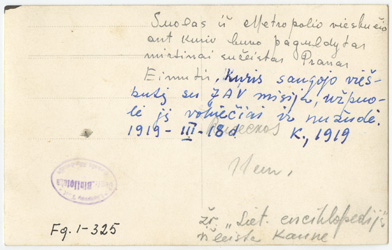 Suolas iš Metropolio viešbučio
ant kurio buvo paguldytas
mirtinai sužeistas Pranas
Eimutis, kuris saugojo vieš-
butį su JAV misija, užpuo-
lė jį vokiečiai ir nužudė.
1919-III-18 d K., 1919
žr. „Liet. enciklopedij
Fg. 1-325